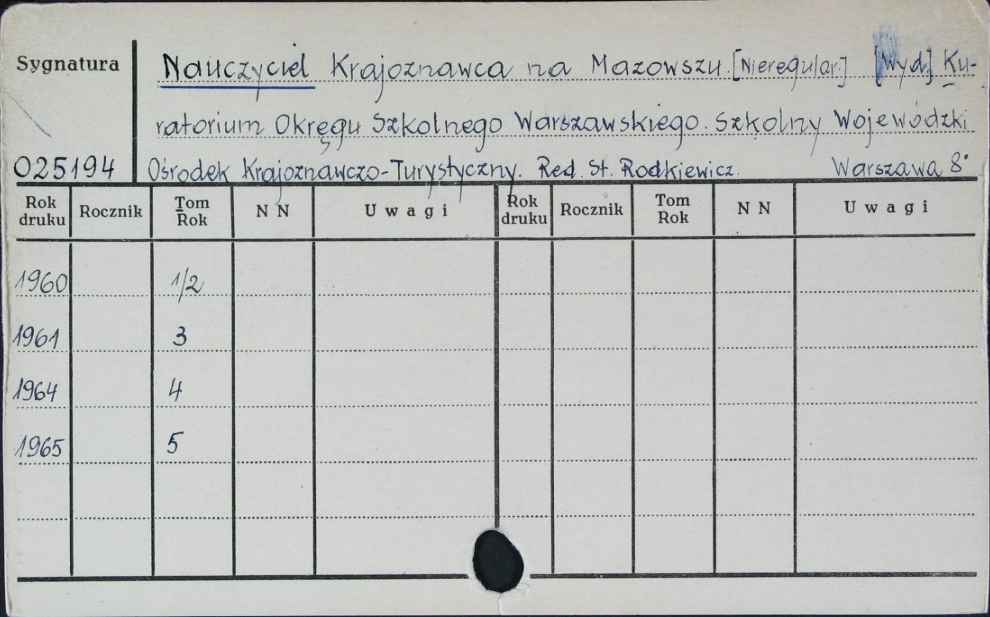 Sygnatura
Nauczyciel Krajoznawca na Mazowszu. [Nieregular.] [Wyd.] Ku-
ratorium Okręgu Szkolnego Warszawskiego. Szkolny Wojewódzki
025194 Ośrodek Krajoznawczo-Turystyczny. Red. St. Rodkiewicz. Warszawa 8°
Rok druku Rocznik Tom Rok N N Uwagi Rok druku Rocznik Tom Rok N N Uwagi
1960 1/2
1961 3
1964 4
1965 5